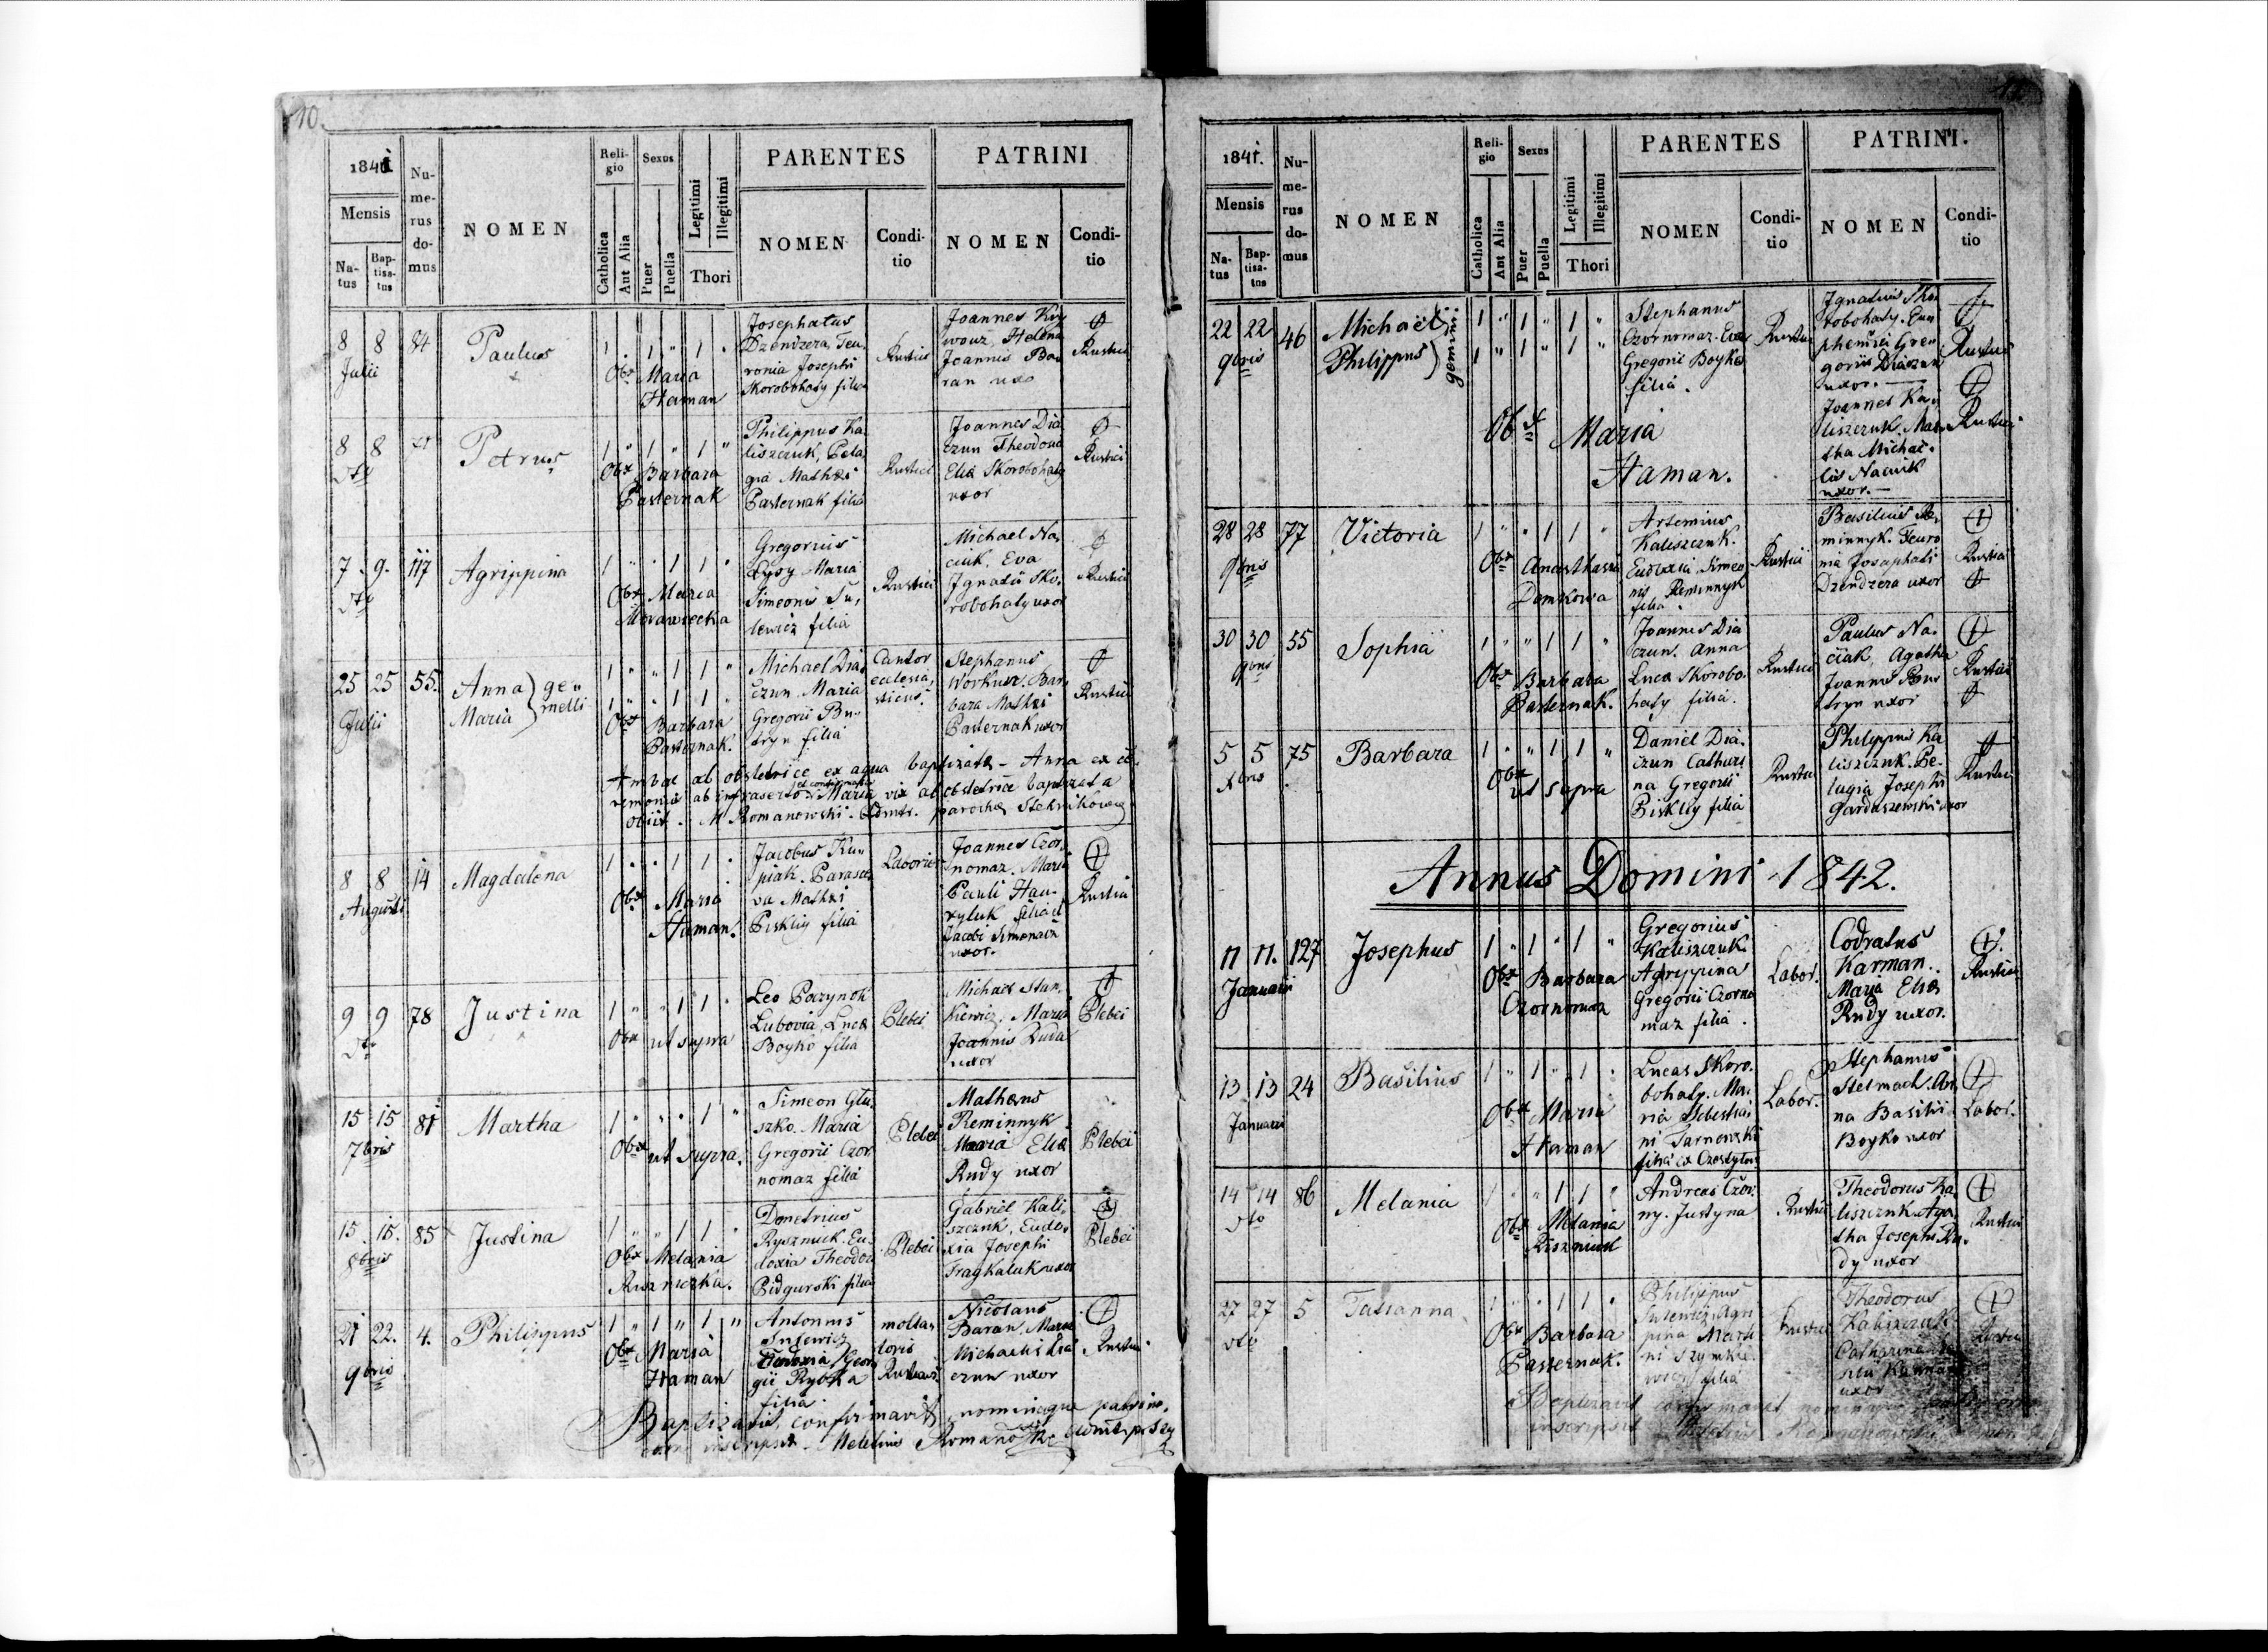 10.
1841.
Mensis
Na-
tus
Bap-
tisa-
tus
Nu-
me-
rus
do-
mus
NOMEN
Reli-
gio
Catholica
Aut Alia
Sexus
Puer
Puella
Legitimi
Illegitimi
Thori
PARENTES
NOMEN
Condi-
tio
PATRINI
NOMEN
Condi-
tio
8 8 84 Paulus 1 . 1 " 1 .
Julii
Obx Maria
Haman
Josephatus
Dzendzera, Teu-
ronia Josephi
Skorobohaty filia
Rustici
Joannes
Helena
Joannis Ba-
ran uxo
Rustici
8 8 Petrus 1 " 1 " 1 "
dto
Obx Barbara
Pasternak
Philippus Ka-
liszczuk, Pela-
gia Mathei
Pasternak filia
Rustici
Joannes Dia-
czun Theodosia
Eliæ Skorobohaty
uxor
Rustici
7. 9. 117 Agrippina 1 " . 1 1 .
dto
Obx Maria
Morawiecka
Gregorius
Łysy Maria
Simeonis Su-
lewicz filia
Rustici
Michael Na-
ciuk, Eva
Ignatii Sko-
robohaty uxor
Rustici
25 25 55. Anna
Maria
ge-
melli
Julii
1 " " 1 1 "
1 " . 1 1 .
Obx Barbara
Pasternak.
Michael Dia-
czun Maria
Gregorii Bu-
tryn filia
Cantor
eclesia-
sticus.
Stephanus
Workun. Bar-
bara Mathei
Pasternak uxor
Rustici
Ambae ab obstetrice ex aqua baptizatæ – Anna ex
remoniis ab infrascripto Maria vix ab obstetrice baptizata
obiit. M Romanowski. Admtr. parochia
8 8 14 Magdalena 1 . . 1 1 .
Augusti
Obx Maria
Haman.
Jacobus Ku-
piak. Parasce-
va Mathei
Piskliy filia
Joannes Czor-
nomaz. Maria
Pauli Hau-
ryluk filia et
Jacobi Simonacz
uxor.
Rustici
9 9 78 Justina 1 " " 1 1 .
dto
Obx ut supra
Leo Poczynok
Lubovia, Lucæ
Boyko filia
Plebei
Michael Stan-
kiewicz. Maria
Joannis Duda
uxor
Plebei
15 15 81 Martha 1 " " . 1 "
7bris
Obx ut supra.
Simeon Glu-
szko. Maria
Gregorii Czor-
nomaz filia
Plebei
Matheus
Reminnyk
Maria Eliæ
Rudy uxor
Plebei
15. 15. 85 Justina 1 " " 1 1 .
8bris
Obx Melania
Demetrius
Ryszniuk. Eu-
doxia Theodori
Pidgurski filia
Plebei
Gabriel Kali-
szczuk, Eudo-
xia Josephi
uxor
Plebei
21 22. 4. Philippus 1 " 1 " 1 "
9bris
Obx Maria
Haman
Antonius
Sulewicz
Eudoxia Geor-
gii Rybka
filia.
molia-
toris
Nicolaus
Baran, Maria
Michaelis Dia-
czun uxor
Rustici
Baptizavit, confirmavit, nominaque patrino-
rum inscripsit. Meletius Romanowski
1841.
Mensis
Na-
tus
Bap-
tisa-
tus
Nu-
me-
rus
do-
mus
NOMEN
Reli-
gio
Catholica
Aut Alia
Sexus
Puer
Puella
Legitimi
Illegitimi
Thori
PARENTES
NOMEN
Condi-
tio
PATRINI.
NOMEN
Condi-
tio
22 22 46 Michael
Philippus
gemini
9bris
1 " 1 " 1 "
1 " 1 " 1 "
Obx Maria
Haman.
Stephanus
Czornomaz. Eva
Gregorii Boyko
filia.
Rustici
Ignatius Sko-
robohaty. Eu-
phemia Gre-
gorii Diaczun
uxor. —
Rustici
Joannes Ka-
liszczuk. Mar-
tha Michae-
lis Naciuk
uxor. —
Rustici
28 28 77 Victoria 1 " . 1 1 "
9bris
Obx Anasthasia
Domkowa
Artemius
Kaliszczuk.
Eudoxia, Simeo-
nis Reminnyk
filia
Rustici
Basilius Re-
minnyk. Teuro-
nia Josaphati
Dzendzera uxor
Rustici
30 30 55 Sophia 1 " " 1 1 "
9bris
Obx Barbara
Pasternak.
Joannes Dia-
czun. Anna
Lucæ Skorobo-
haty filia.
Rustici
Paulus Na-
ciiak, Agatha
Joannis Bu-
tryn uxor
Rustici
5 5 75 Barbara 1 . " 1 1 "
Xbris
Obx
ut supra
Daniel Dia-
czun Cathari-
na Gregorii
Piskliy filia
Rustici
Philippus Ka-
liszczuk. Pe-
lagia Josephi
Gardaszewski uxor
Rustici
Annus Domini 1842.
11 11. 127 Josephus 1 " 1 " 1 "
Januarii
Obx Barbara
Czornomaz
Gregorius
Kaliszczuk.
Agrippina
Gregorii Czorno-
maz filia.
Labor.
Codratus
Karman.
Maria Eliæ
Rudy uxor.
Rustici
13 13 24 Basilius 1 " 1 " 1 .
Januarii
Obx Maria
Haman
Lucas Skoro-
bohaty. Ma-
ria Sebestia-
ni Sarnowski
filia ex
Labor.
Stephanus
Stelmach. An-
na Basilii
Boyko uxor
Labor.
14 14 86 Melania 1 " " 1 1 "
dto
Obx Melania
Riszniuk
Andreas Czor-
ny. Justyna
Rustici
Theodorus Ka-
liszczuk. Aga-
tha Josephi Ru-
dy uxor
Rustici
27 27 5 Tatianna 1 " . 1 1 .
dto
Obx Barbara
Pasternak.
Philippus
Sulewicz. Agri-
pina Marti-
ni Szymkie-
wicz filia
Rustici
Theodorus
Kaliszczuk
Catharina
uxor
Rustici
Baptizavit confirmavit
inscripsit Meletius Romanowski